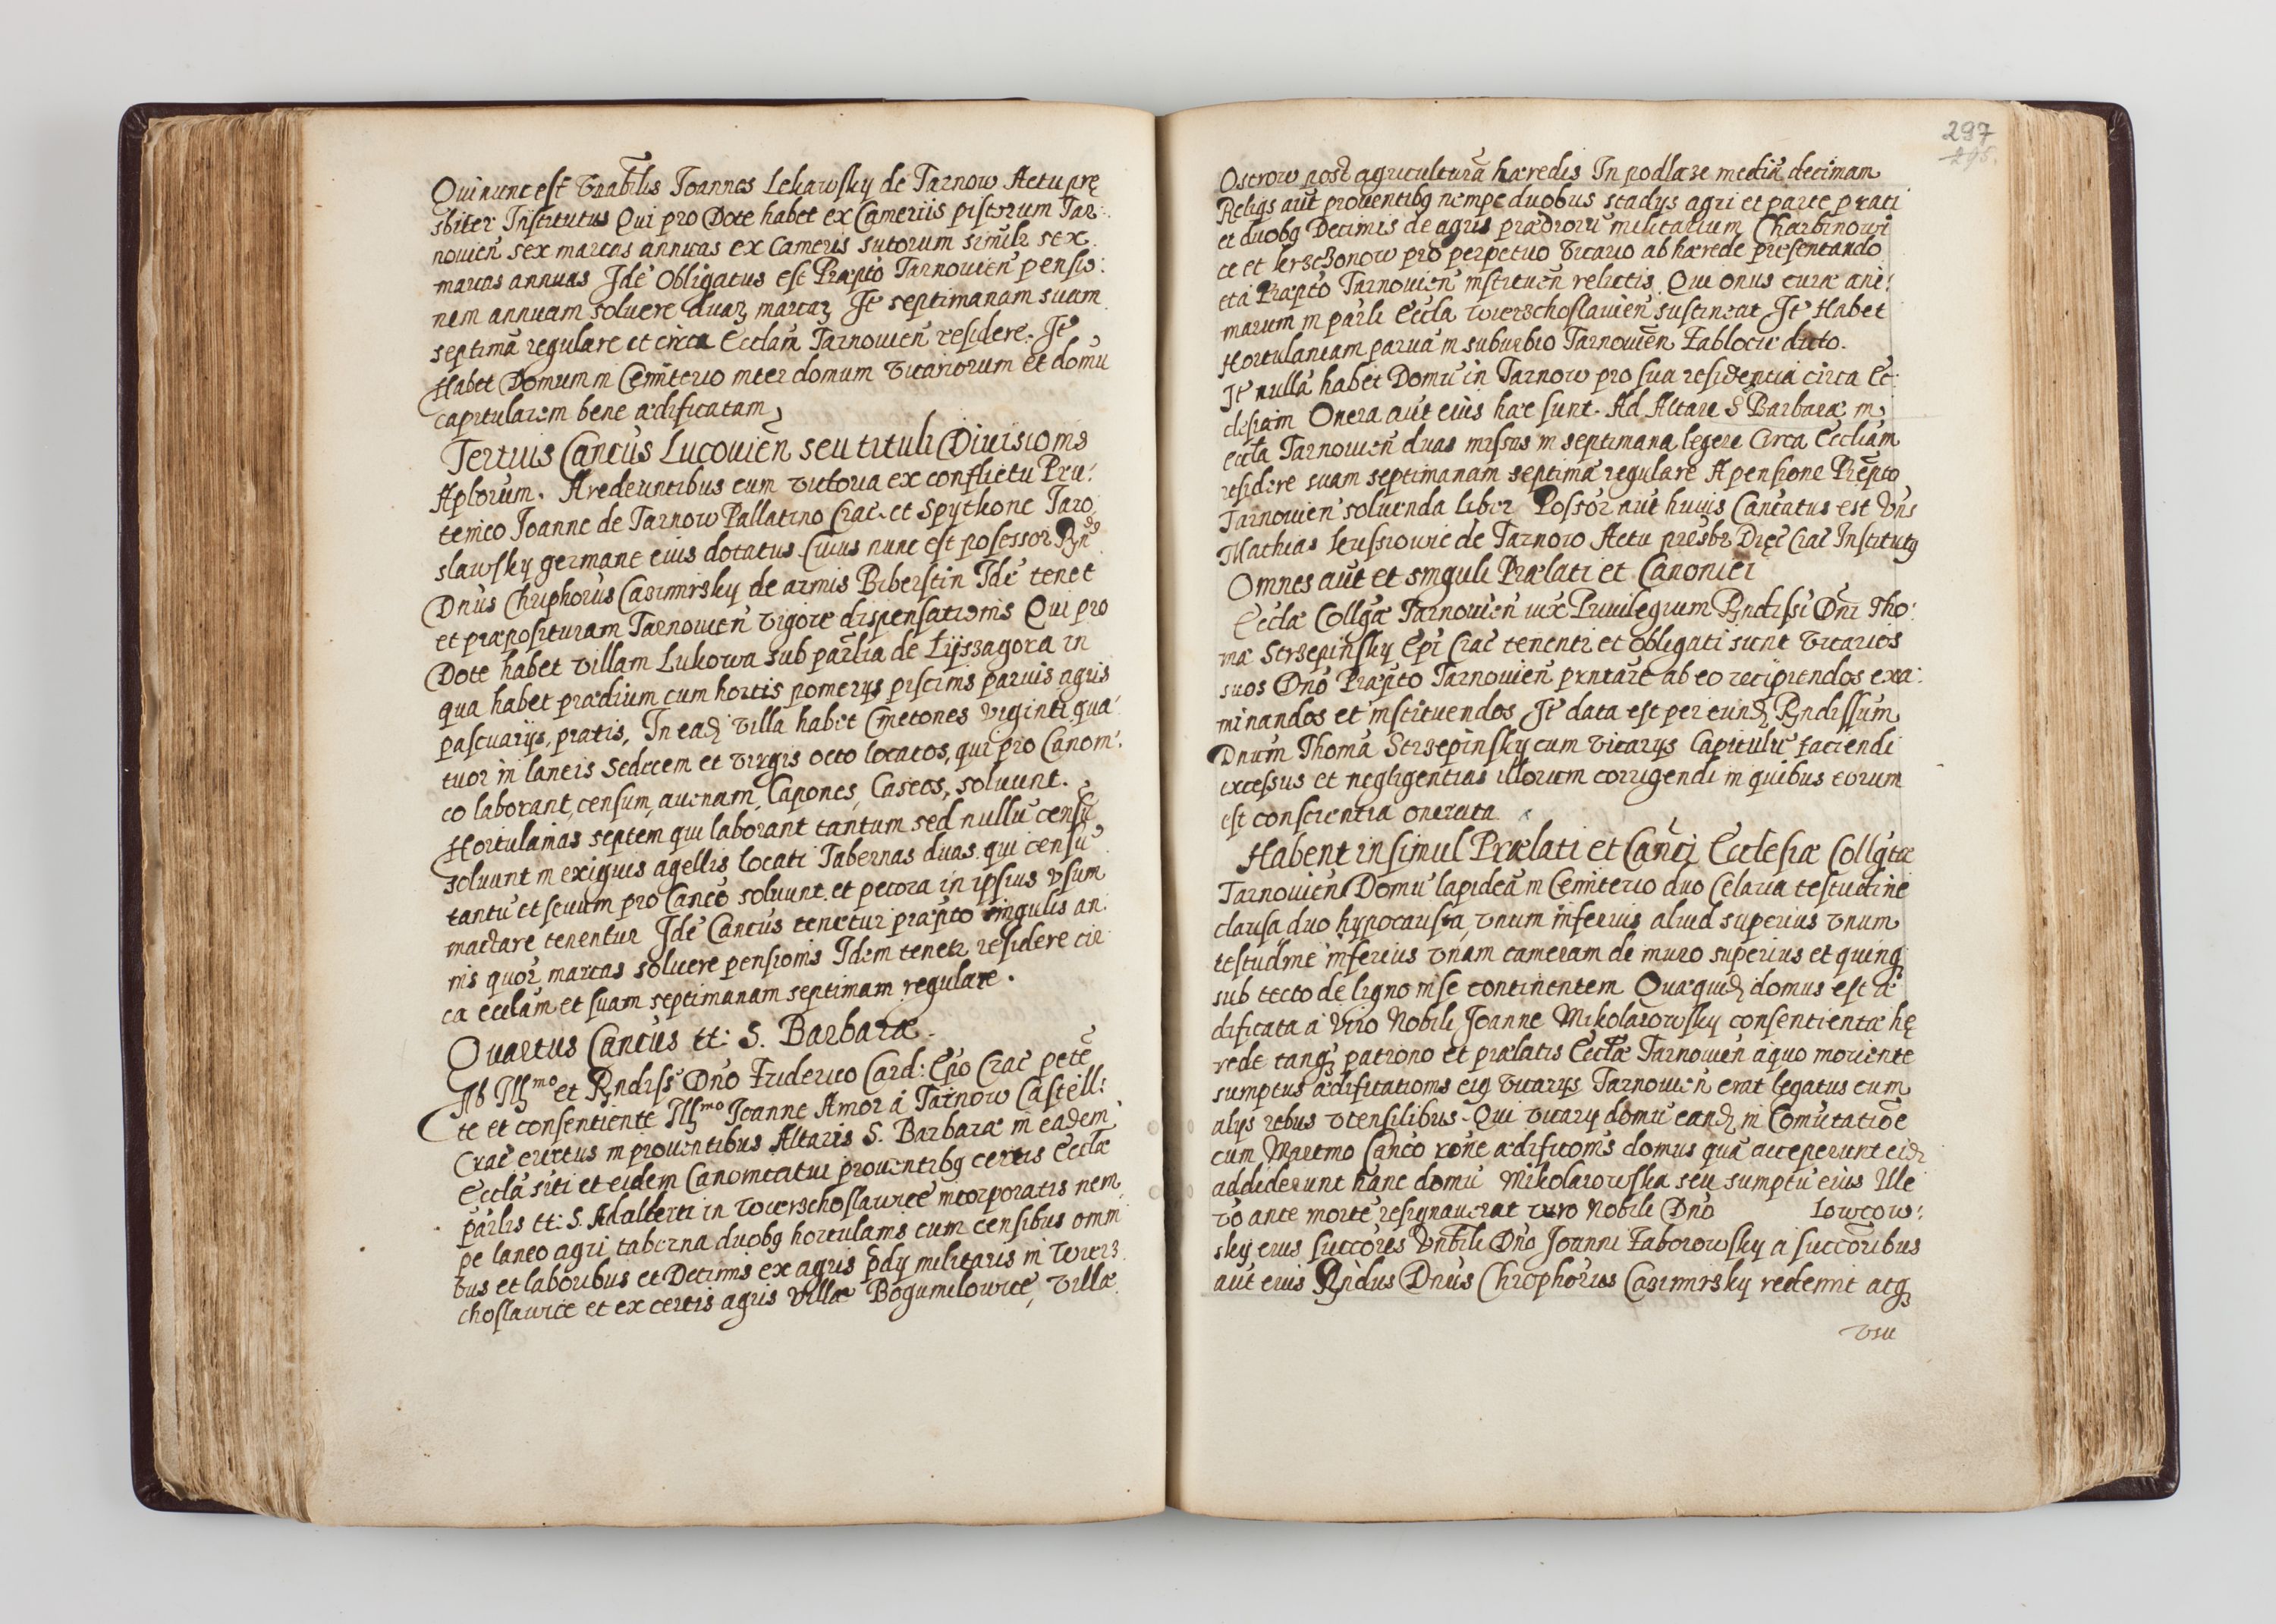 Qui nunc est Vnabilis Joannes Lekawsky de Tarnow Actu prę
sbiter Institutus Qui pro Dote habet ex Cameriis pistorum Tar:
novien̄ sex marcas annuas ex Cameris sutorum similr sex
marcas annuas Jdē Obligatus est Præpto Tarnovien̄ pensio:
nem annuam solvere duaꝫ marcaꝫ Jt septimanam suam
septimā regulare et circa Ecclām Tarnovien̄ residere. Jt
Habet Domum in Cemiterio inter domum Vicariorum et domū
capitularem bene ædificatam,
Tertius Cancūs Lucovien̄ seu tituli Divisionis
Aplorum. A redeuntibus cum victoria ex conflictu Pru:
tenico Joanne de Tarnow Pallatino Crac̄ et Spythone Jaro
slawsky germane eius dotatus. Cuius nunc est posessor Rn̄dg
Dnūs Chriphorus Casimirsky de armis Biberstin Jdē tenet
et præposituram Tarnovien̄ vigore dispensationis Qui pro
Dote habet villam Lukowa sub parlia de Lÿsszagora in
qua habet prædium cum hortis pomerÿs piscinis parvis agris
pascuarÿs, pratis, Jn eadꝫ villa habet Cmetones viginti qua:
tuor in laneis Sedecem et virgis octo locatos, qui pro Canoni:
co laborant, censum, avenam, Capones, Caseos, solvunt.
Hortulanias septem qui laborant tantum sed nullū censū
solvunt in exiguis agellis locati Tabernas duas qui censū
tantū et sevum pro Canco solvunt et pecora in ipsius vsum
mactare tenentur Jdē Cancūs tenetur præpto singulis an:
nis quor marcas solvere pensionis Jdem tenetr residere cir
ca ecclam et suam septimanam septimam regulare.
Quartus Cancūs tt: S. Barbaræ.
Ab Jllmo et Rndiss Dnō Friderico Card: Epo Crac̄ petē
te et consentiente Jllmo Joanne Amor ā Tarnow Castell:
Crac̄ erectus in proventibus Altaris S. Barbaræ in eadem
Ecclā siti et eidem Canonicatui proventibg certis Ecclæ
parlis tt: S. Adalberti in Wierschoslawice incorporatis nem
pe laneo agri taberna duobg hortulanis cum censibus omni
bus et laboribus et Decimis ex agris pdÿ militaris in Wiers
choslawice et ex certis agris villæ Bogumilowice, villæ
297
295.
Ostrow post agriculturā hæredis Jn podlaze mediā decimam
Reliqs aūt proventibg nempe duobus stadÿs agri et parte prati
et duobg Decimis de agris prædiorū militarium Charbinowi
ce et Jerszonow pro perpetuo Vicario ab hærede præsentando
et ā Præpto Tarnovien̄ instituen̄ relictis. Qui onus curæ ani:
marum in parli Eccla Wierschoslavien̄ sustineat Jt Habet
Hortulaniam parvā in suburbio Tarnovien̄ Zablocie dicto.
Jt nullā habet Domū in Tarnow pro sua residentia circa Ec:
clesiam Onera aūt eius hæc sunt. Ad Altare S Barbaræ in
eccla Tarnovien̄ duas missas in septimana legere Circa Eccliam
residere suam septimanam septimā regulare A pensione Præpto
Tarnovien̄ solvenda liber Possor aūt huius Cancatus est Vnis
Mathias Jerissiowic de Tarnow Actu presbr Diec̄ Crac̄ Institutg
Omnes aūt et singuli Prælati et Canonici
Ecclæ Collgæ Tarnovien̄ iux Privilegium Rndissi Dnī Tho:
mæ Strzepinsky Epī Crac̄ tenentr et obligati sunt Vicarios
suos Dnō Præpto Tarnovien̄ pntare ab eo recipiendos exa:
minandos et instituendos Jt data est per eundꝫ Rndissum
Dnum Thomā Strzepinsky cum Vicarÿs Capitulū faciendi
excessus et negligentias illorum corrigendi in quibus eorum
est conscientia onerata
Habent insimul Prælati et Canci Ecclesiæ Collgtæ
Tarnovien̄ Domū lapideā in Cemiterio duo Celaria testudine
clausa duo hypocausta, vnum inferius aliud superius vnum
testudinē inferius vnam cameram de muro superius et quinqꝫ
sub tecto de ligno in se continentem Quæquidꝫ domus est æ
dificata a Viro Nobili Joanne Mikolaiowsky consentientæ hę
rede tanqꝫ patrono et prælatis Ecclæ Tarnovien̄ a quo moriente
sumptus ædificationis eig Vicarÿs Tarnovien̄ erat legatus cum
alÿs rebus vtensilibus. Qui vicarÿ domū eandꝫ in Comutatiōe
cum Martino Canco rōne ædificōnis domus quā acceperunt eidꝫ
addiderunt hanc domū Mikolaiowska seu sumptū eius Ille
vō ante mortē resignaverat viro Nobili Dnō Lowcow:
sky eius succores Vnbili Dnō Joanni Zaborowsky a succoribus
aūt eius Rn̄dus Dnūs Chrophorus Casimirsky redemit atqꝫ
vsu